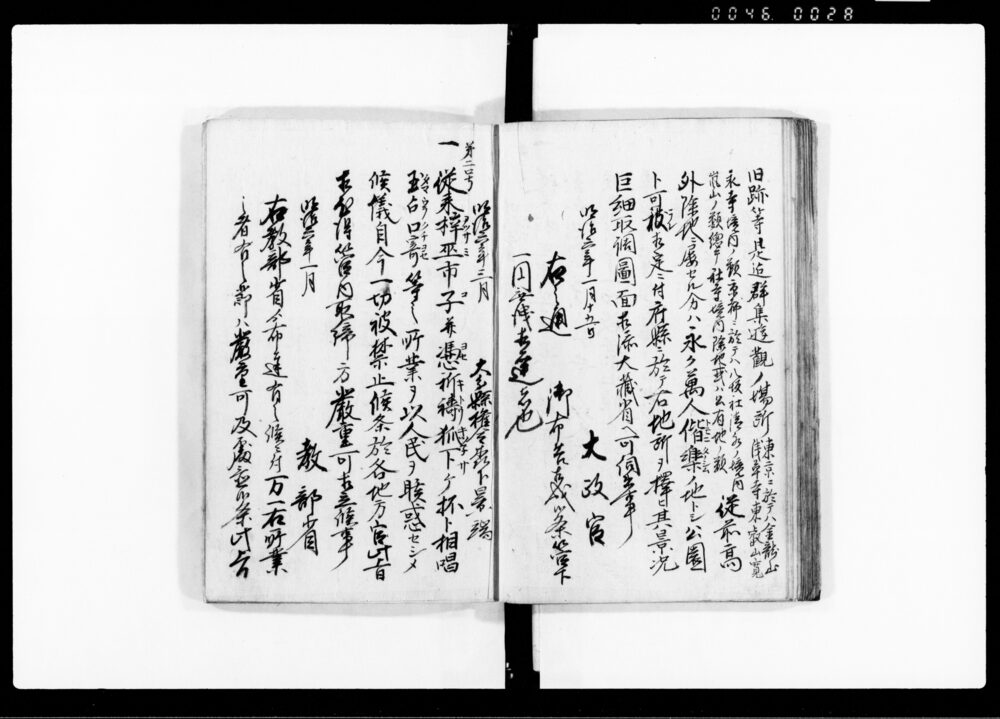 0046. 0028
旧跡等是迄群集遊觀ノ場所東京ニ於テハ金龍山浅草寺東叡山寛
永寺境内ノ類京都ニ於テハ八坂社清水ノ境内
嵐山ノ類總テ社寺境内除地或ハ公有地ノ類従前高
外除地ニ属セル分ハ永ク萬人偕樂ノ地トシ公園
ト可被相定ニ付府縣ニ於テ右地所ヲ擇ヒ其景况
巨細取調圖面相添大藏省ヘ可伺出事
明治六年一月十五日
大政官
右之通御布告相成候条管下
一円無洩相達者也
明治六年三月
第二号
一従來梓巫市子并憑祈禱狐下ケ抔ト相唱
玉占口寄等之所業ヲ以人民ヲ眩惑セシメ
候儀自今一切被禁止候条於各地方官此旨
相心得管内取締方嚴重可相立候事
明治六年一月
教部省
右教部省ヨリ布達有之候ニ付万一右所業
之者有之節ハ嚴重可及處置候条此旨